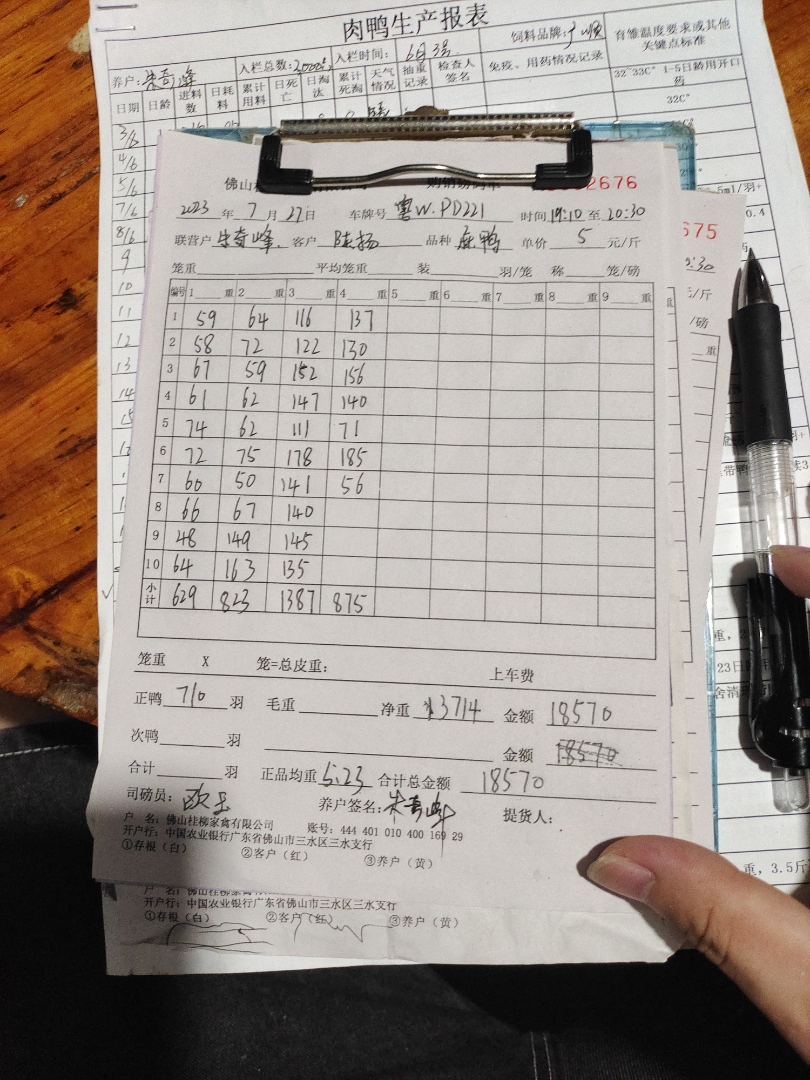 肉鸭生产报表
养户: 朱奇峰 入栏总数: 入栏时间: 6月3号 饲料品牌: 育雏温度要求或其他关键点标准
日期 日龄 进料数 日耗料 累计用料 日死亡 日淘汰 累计死淘 天气情况 抽重记录 检查人签名 免疫、用药情况记录 32~33C° 1-5日龄用开口药
32C°
3/6
4/6
5/6
7/6
8/6
9
10
11
12
13
14
15
佛山 2676
2023 年 7 月 27 日 车牌号 粤W.PD221 时间 19:10 至 20:30
联营户 朱奇峰 客户 陈扬 品种 麻鸭 单价 5 元/斤
笼重 平均笼重 装 羽/笼 称 笼/磅
编号 1 重 2 重 3 重 4 重 5 重 6 重 7 重 8 重 9 重
1 59 64 116 137
2 58 72 122 130
3 67 59 152 156
4 61 62 147 140
5 74 62 111 71
6 72 75 178 185
7 60 50 141 56
8 66 67 140
9 48 149 145
10 64 163 135
小计 629 823 1387 875
笼重 X 笼=总皮重: 上车费
正鸭 710 羽 毛重 净重 3714 金额 18570
次鸭 羽 金额 18570
合计 羽 正品均重 5.23 合计总金额 18570
司磅员: 养户签名: 朱奇峰 提货人:
户 名: 佛山桂柳家禽有限公司 账号: 444 401 010 400 169 29
开户行: 中国农业银行广东省佛山市三水区三水支行
①存根(白) ②客户(红) ③养户(黄)
户 名: 佛山桂柳家禽
开户行: 中国农业银行广东省佛山市三水区三水支行
①存根(白) ②客户(红) ③养户(黄)
675
:30
/斤
/磅
重
重, 3.5斤